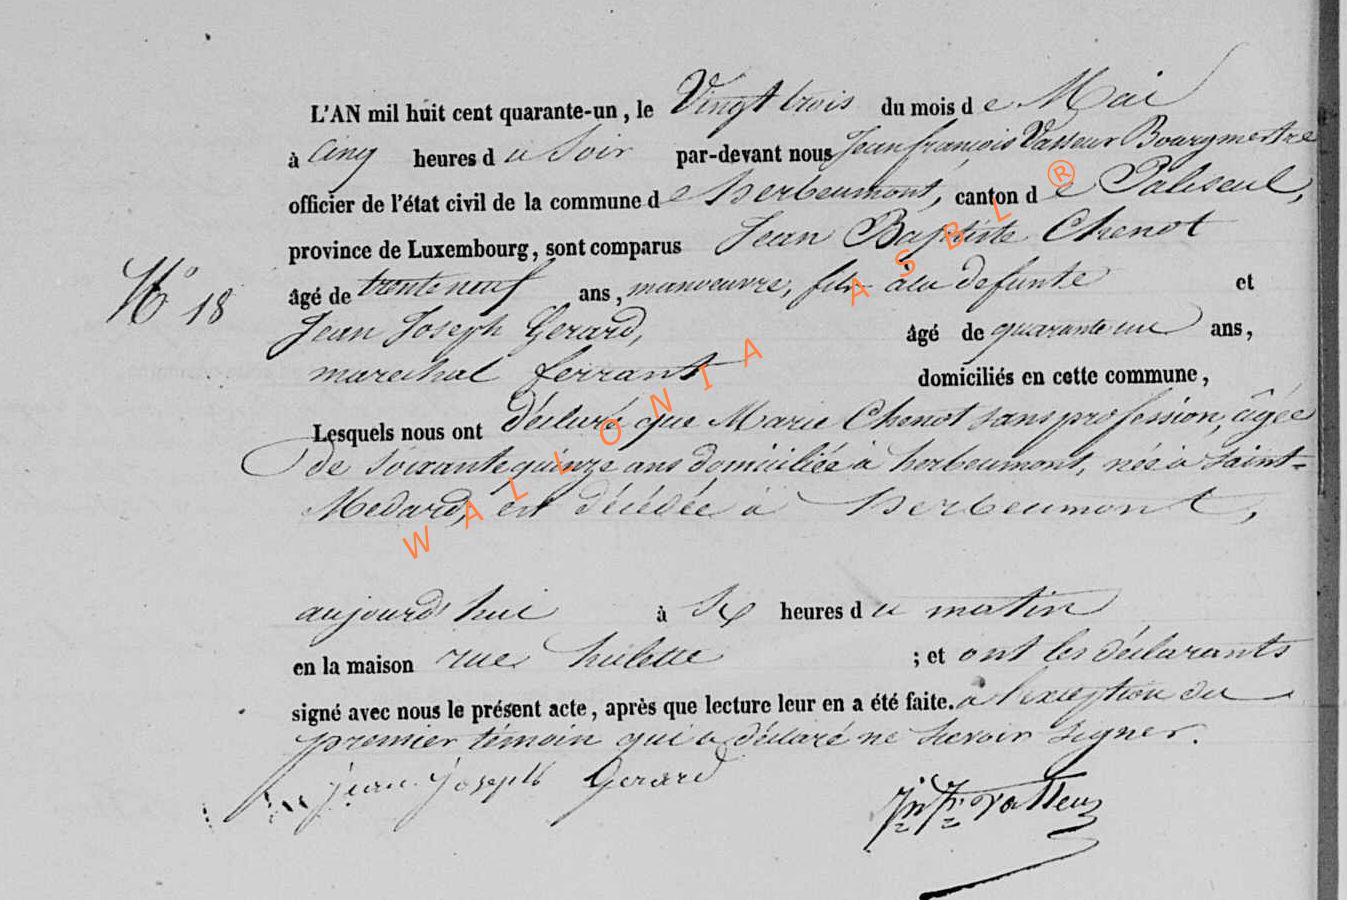 L'AN mil huit cent quarante-un, le Vingt trois du mois de Mai
à cinq heures du Soir par-devant nous Jean françois Vasseur Bourgmestre
officier de l'état civil de la commune de herbeumont, canton de Paliseul,
province de Luxembourg, sont comparus Jean Baptiste Chenot
âgé de trente neuf ans, manoeuvre, fils à la defunte et
N° 18
Jean Joseph Gerard, âgé de quarante un ans,
marechal ferrant domiciliés en cette commune,
Lesquels nous ont déclaré que Marie Chenot sans profession, âgée
de soixante quinze ans domiciliée à herbeumont, née à Saint-
Medard, est décédée à herbeumont,
aujourd hui à six heures du matin
en la maison rue ; et ont les déclarants
signé avec nous le présent acte, après que lecture leur en a été faite. à l'exception du
premier témoin qui a déclaré ne savoir signer.
Jean Joseph Gerard
WALLONIA ASBL ®